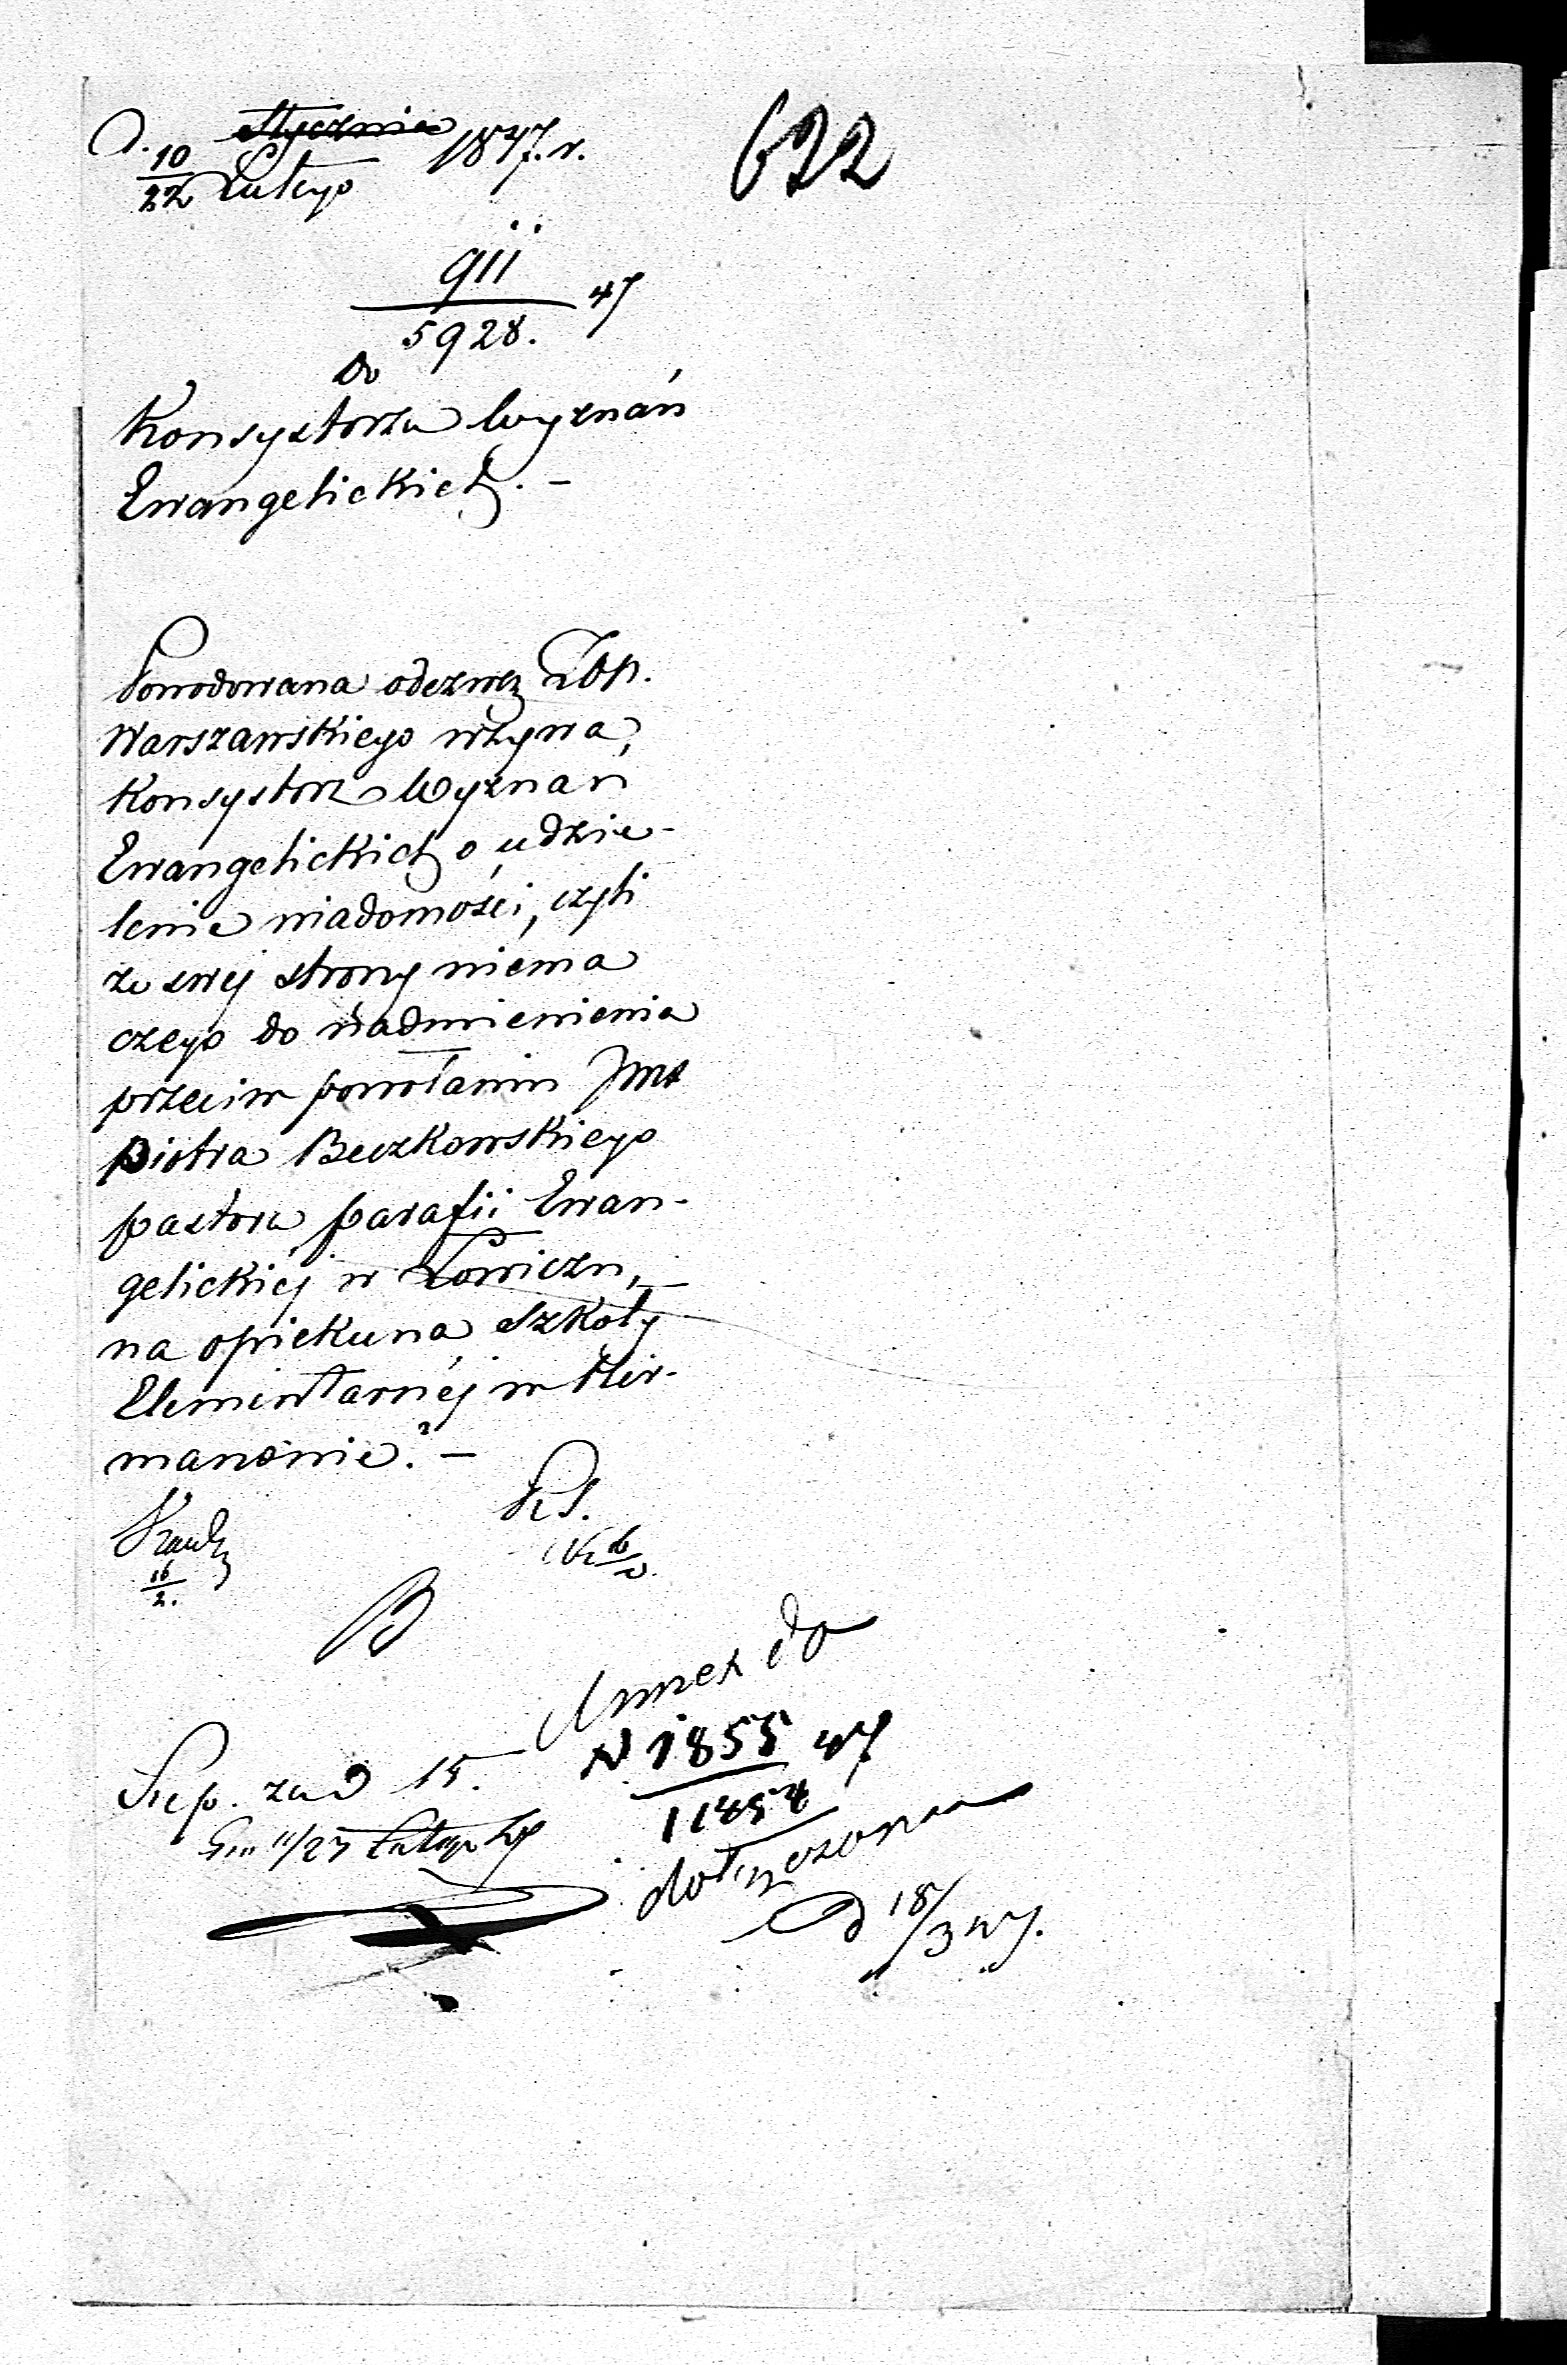 D. 10/22 Stycznia Lutego 1847. r.
622
911/5928. 47
Do
Konsystorza Wyznań
Ewangelickich. -
Powodowana odezwą
Warszawskiego wzywa
Konsystorz Wyznań
Ewangelickich o udzie-
lenie wiadomości, czyli
ze swej strony niema
czego do nadmienienia
przeciw powołaniu Jmć
Piotra Beczkowskiego
pastora parafii Ewan-
gelickiej w Łowiczu,
na opiekuna szkoły
Elementarnéj w Her-
manowie? -
16/2.
B
Annex do
N 1855/11858 47
dołączono
d 18/3 47.
15.
11/23 Lutego 47